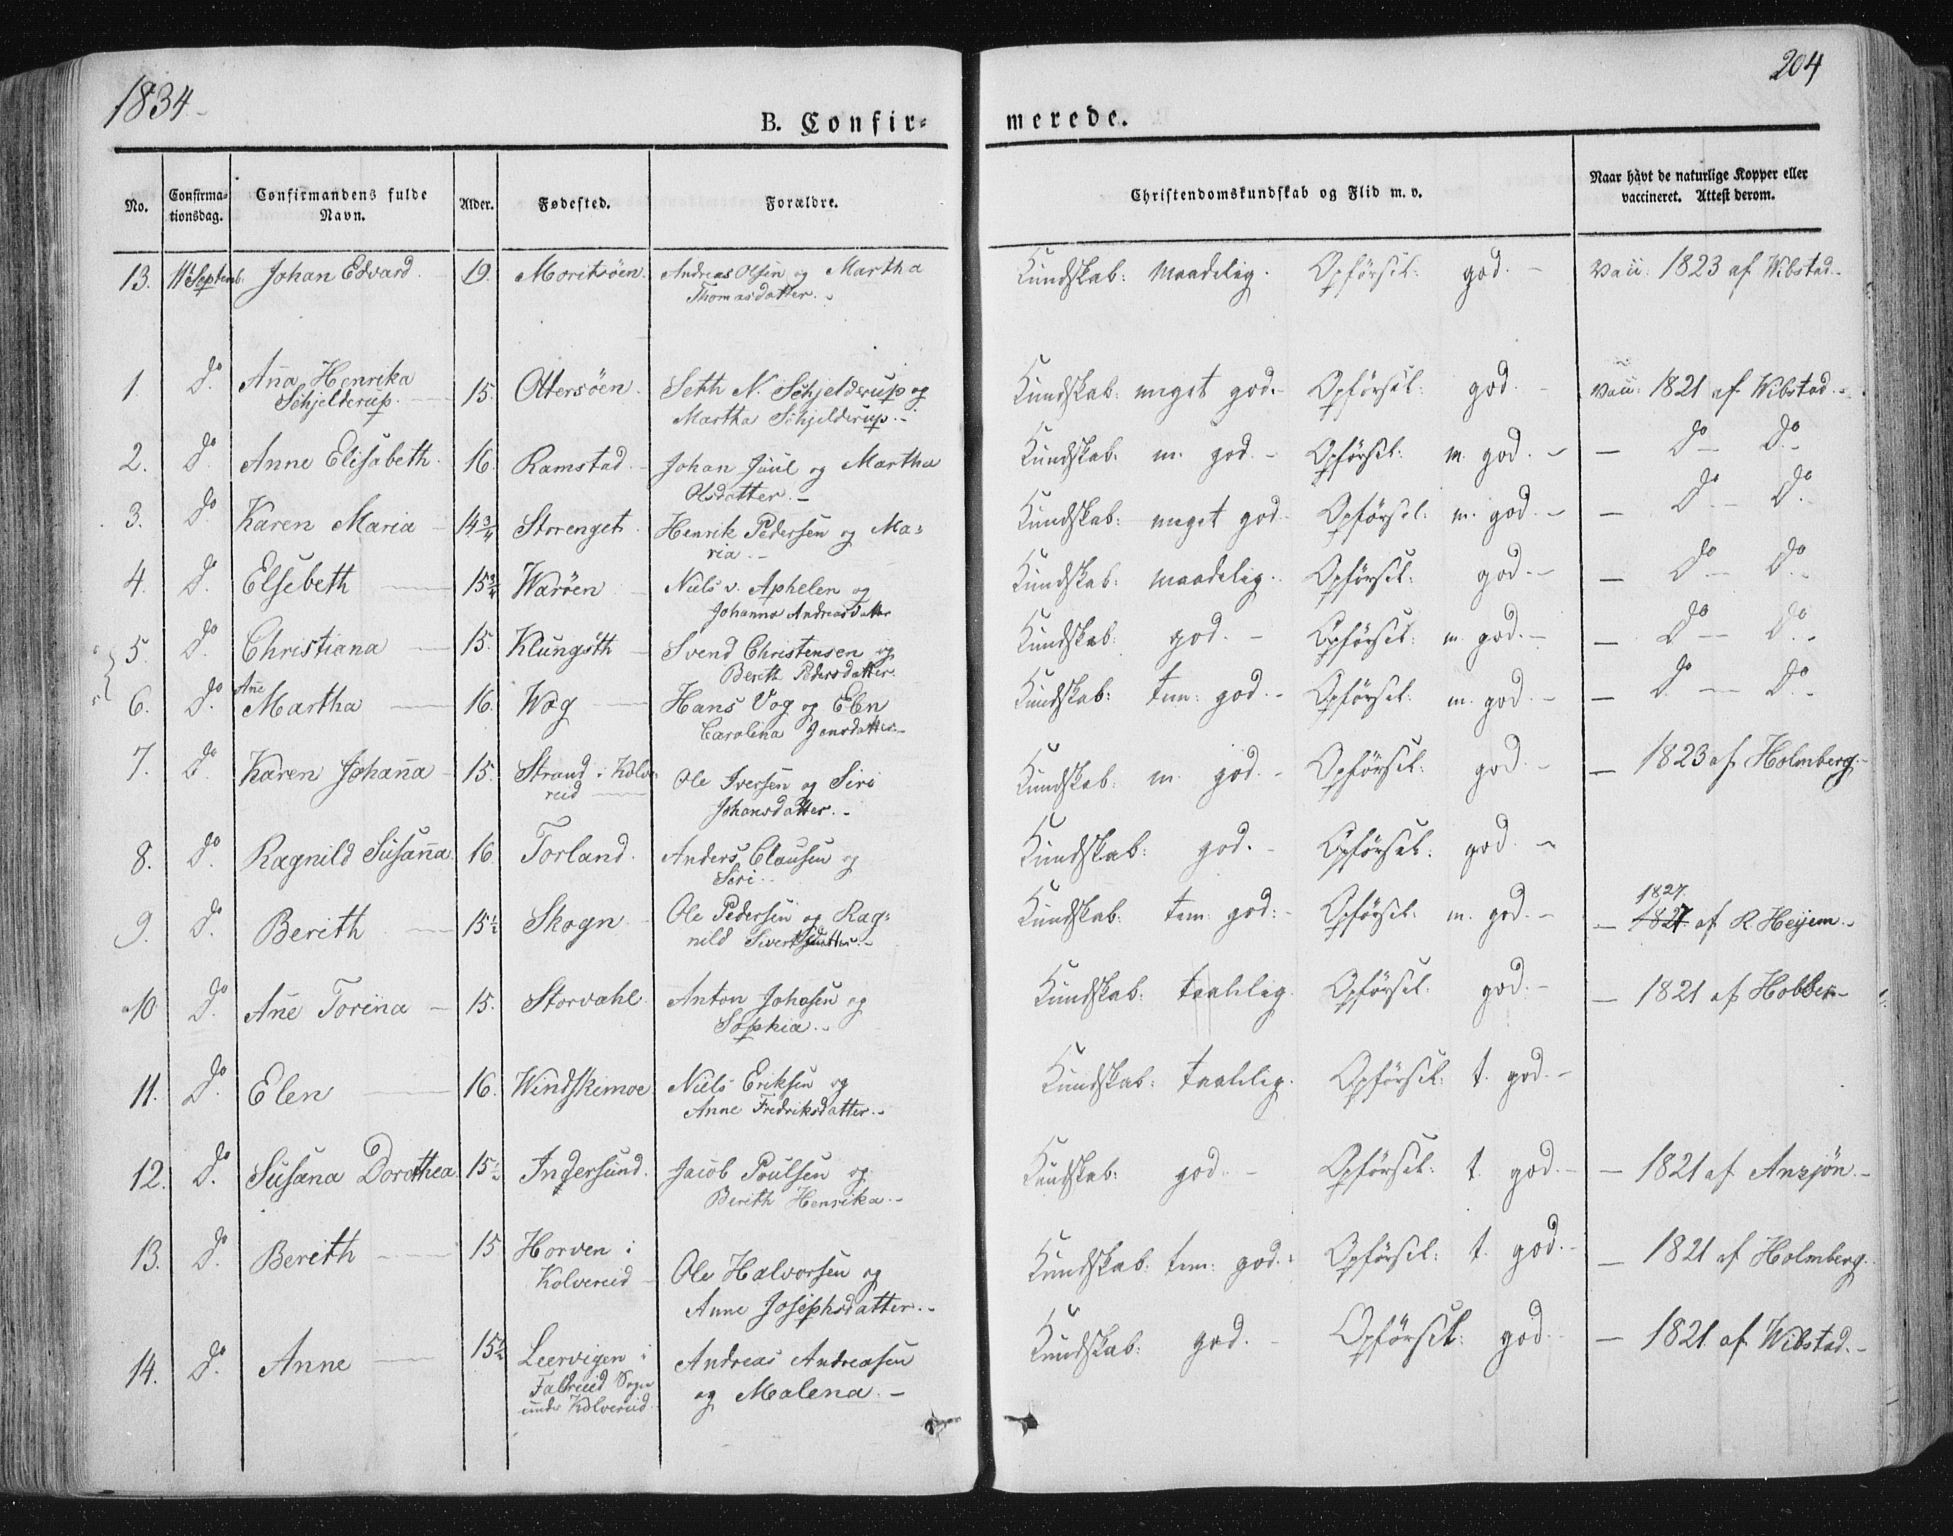 1834
204
B. Confir=
merede.
No.
Confirma=
tionsdag.
Confirmandens fulde
Navn.
Alder.
Fødested.
Forældre.
Christendomskundskab og Flid m. v.
Naar havt de naturlige Kopper eller
vaccineret. Attest derom.
13. Septemb. Johan Edvard 19. Moritsöen. Andreas Olsen og Martha Kundskab: maadelig. Opförsel: god. – 1823 af Wibstad. –
Thomasdatter. –
1. Do Aña Henrika 15. Ottersöen. Seth N. Schjelderup og Kundskab: meget god. – Opförsel: god. – 1821 af Wibstad. –
Schjelderup. Martha Schjelderup. –
2. Do Anne Elisabeth. 16. Ramstad. Johan Juul og Martha Kundskab: m. god. – Opförsel: m. god. – – Do – Do –
Olsdatter. –
3. Do Karen Maria 14 3/4 Storenget. Henrik Pedersen og Ma= Kundskab: meget god. Opförsel: m. god. – – Do – Do –
ria. –
4. Do Elsebeth 15 3/4 Waröen Niels v. Aphelen og Kundskab: maadelig. Opförsel: god. – – Do – Do –
Johanna Andreasdatter
5. Do Christiana 15. Klungsth Svend Christensen og Kundskab: god. – Opförsel: m. god. – – Do – Do –
Berith Pedersdatter.
Añe
6. Do Martha 16. Wog Hans Vog og Elen Kundskab: tem: god. – Opförsel: m. god. – – Do – Do –
Carolina Jensdatter. –
7. Do Karen Johaña 15. Strand i Kolve Ole Iversen og Siri Kundskab: m. god. – Opförsel: god. – – 1823 af Holmberg. –
reid Johansdatter. –
8. Do Ragnild Susaña 16. Torland. Anders Clausen og Kundskab: god. – Opförsel: god. –
Siri. –
9. Do Berith 15 1/2 Skogn Ole Pedersen og Rag= Kundskab: tem: god: – Opförsel: m. god. – 1827.
nild – af R. Heijem. –
10 Do Añe Torina – 15. Storvahl Anton Johasen og Kundskab: taalelig. Opförsel: god. – – 1821 af
Sophia. –
11. Do Elen 16. Windskimoe Niels Eriksen og Kundskab: taalelig. Opförsel: t. god. –
Anne Fredriksdatter. –
12. Do Susana Dorothea 15 1/2 Indersund. Jacob Poulsen og Kundskab: god. – Opförsel: t. god. – – 1821 af Ansjön. –
Berith Henrika. –
13. Do Berith 15 Horven i Ole Halvorsen og Kundskab: tem: god. – Opförsel: t. god. – – 1821 af Holmberg.
Kolvereid Anne Josephsdatter. –
14. Do Anne 15 1/2 Leervigen i Andreas Andreasen Kundskab: god. – Opförsel: god. – 1821 af Wibstad. –
Sogn og Malena. –
under Kolvereid.